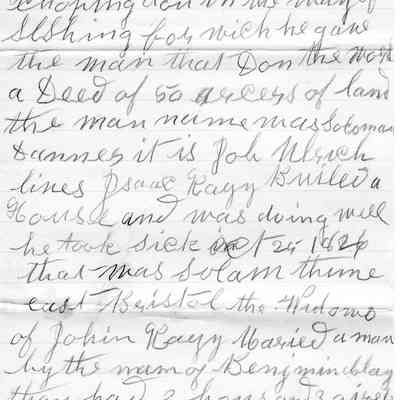 Choping don in the way of
SlShing for wich he gave
the man that Don the work
a Deed of 50 arcers of land
the man name was Soloman
Danner it is Joh Ulrich
lines Isaac Kagy Builed a
House and was doing well
he took sick oct 25 1826
that was solam thime
east Bristol the Widowo
of John Kagy Maried a man
by the nam of Benjmin blay
than had 2